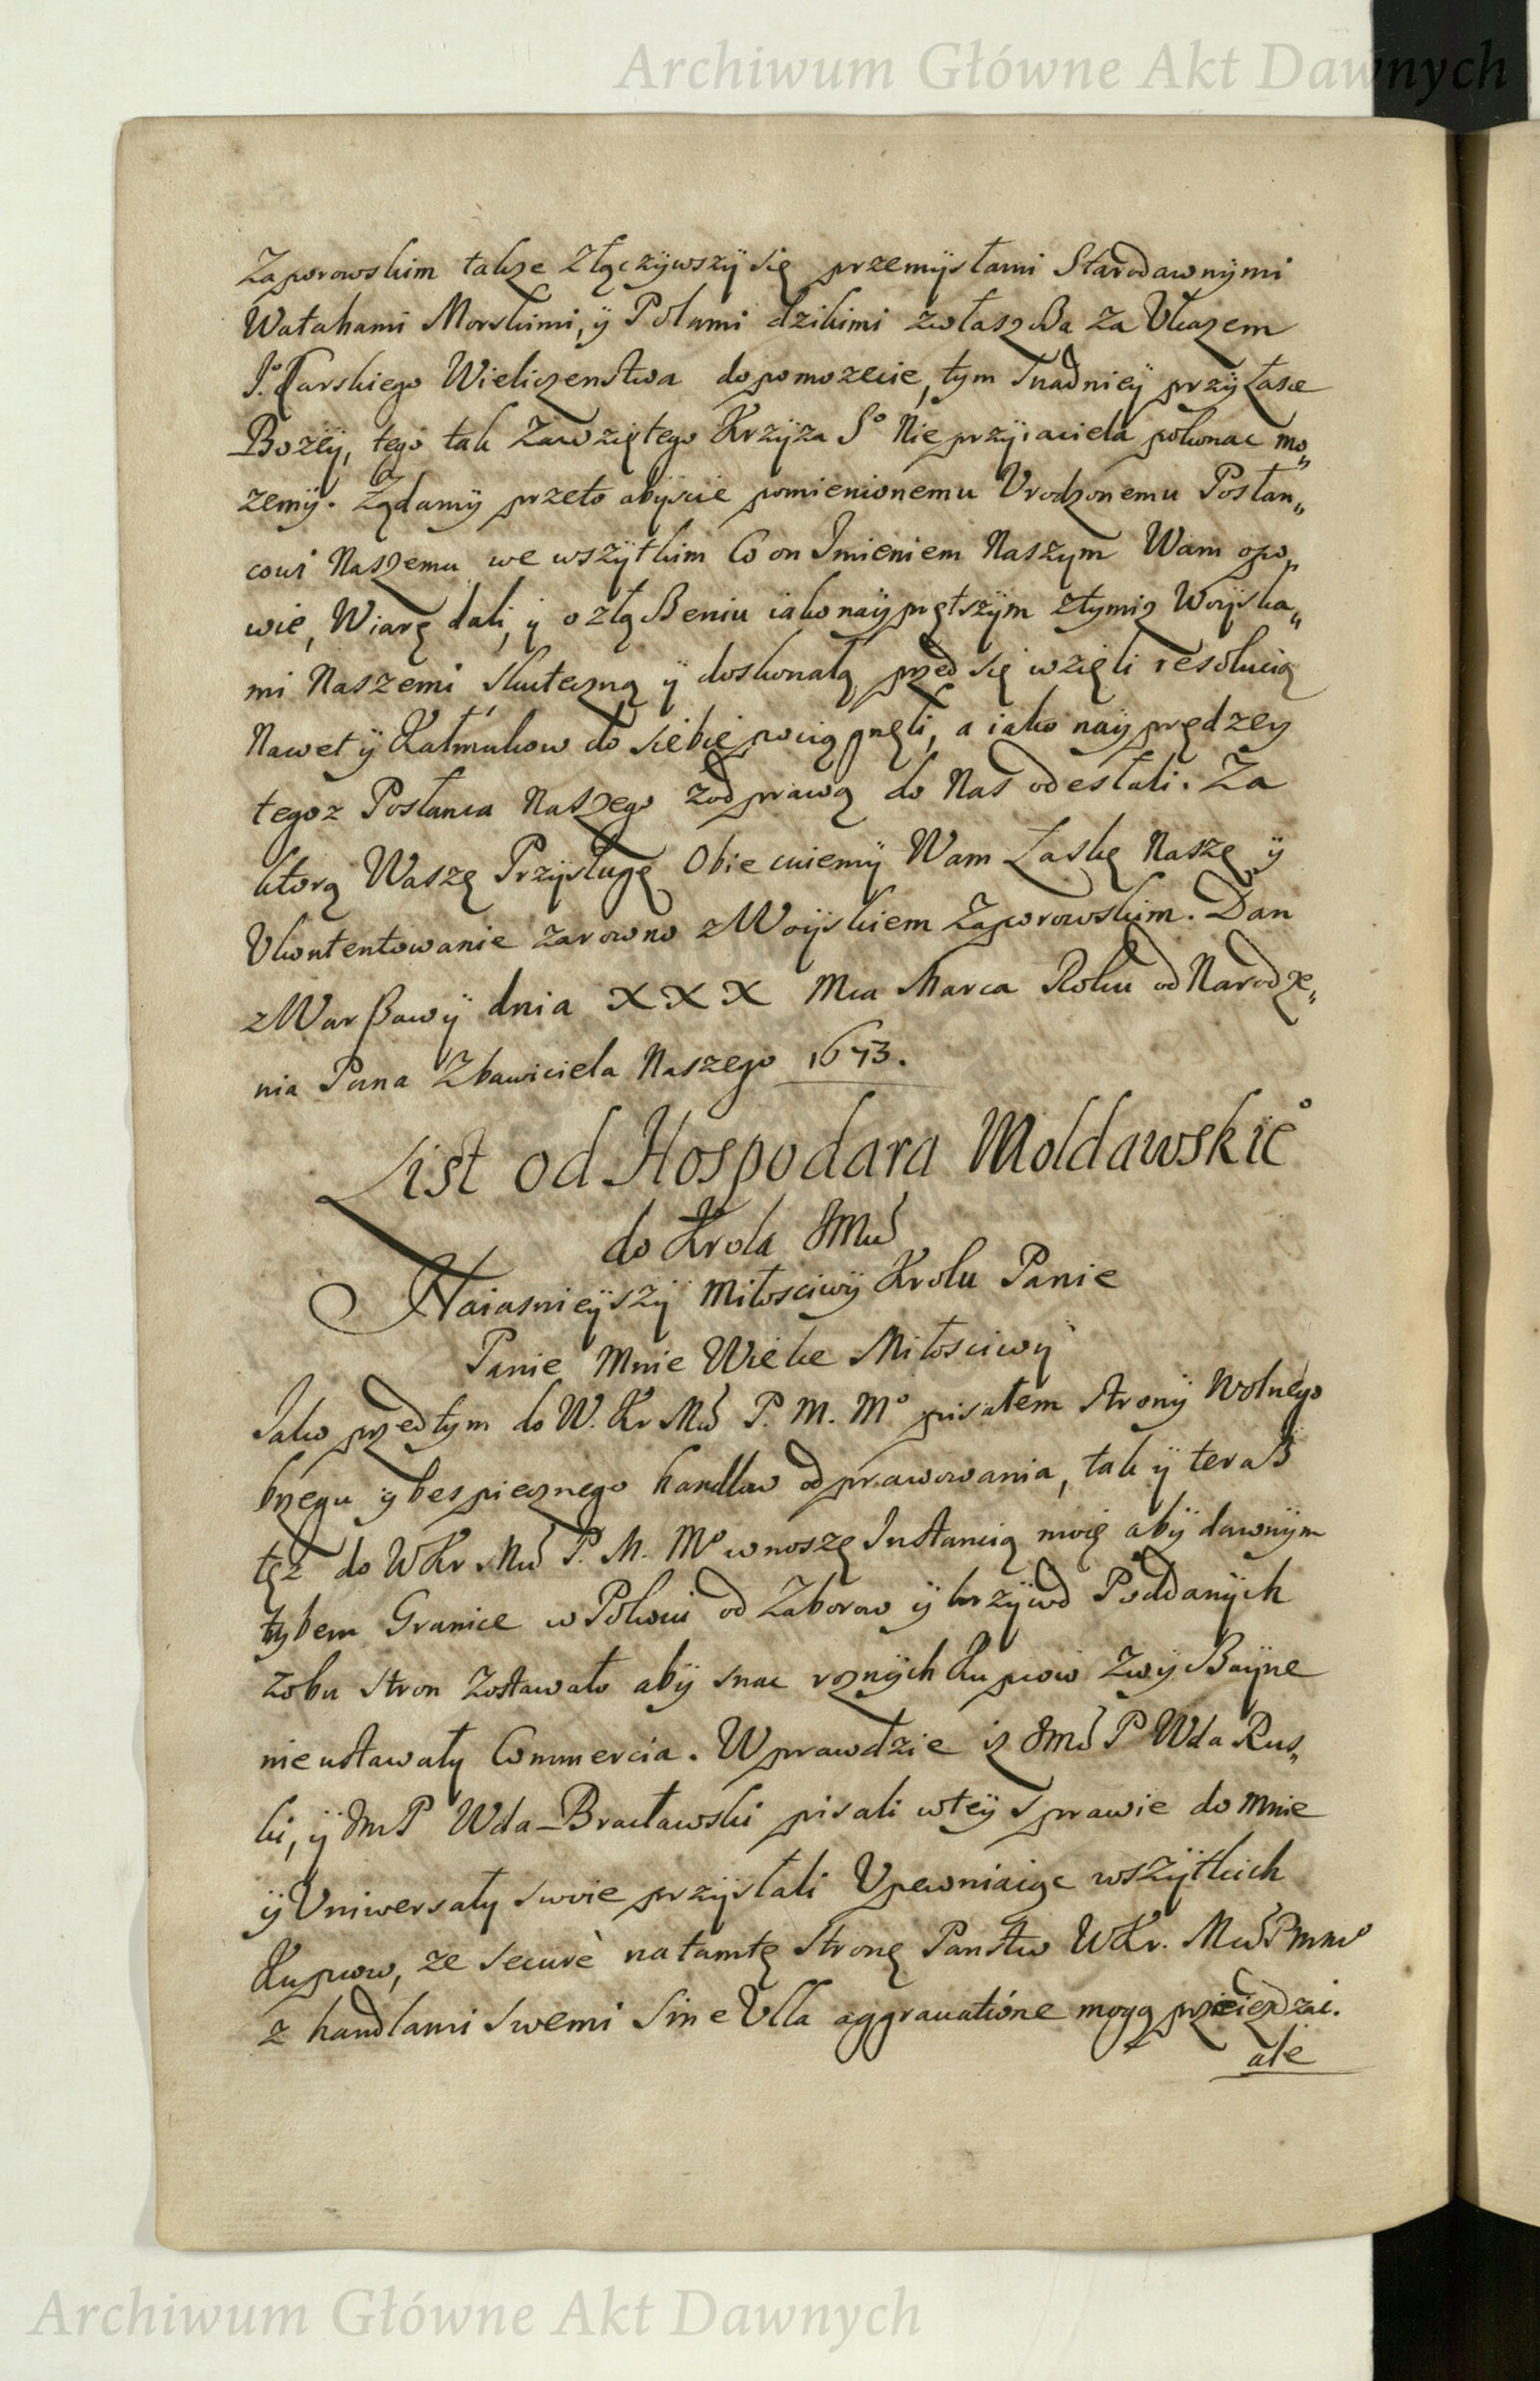 Archiwum Główne Akt Dawnych
Zaporowskim takze Złączÿwszÿ się przemÿsłami Starodawnÿmi
Watahami Morskimi, ÿ Polami dzikimi zwłaszßa za Ukazem
Jº Carskiego Wieliczenstwa dopomozecie, tym snadnieÿ przÿ Łasce
Bozeÿ, tego tak Zawziętego Krzÿza Sº Nieprzÿiaciela pokonac mo„
zemÿ. Ządamÿ przeto abÿscie pomienionemu Urodzonemu Posłan„
cowi Naszemu we wszÿtkim Co on Imieniem Naszÿm Wam opo„
wie, Wiarę dali, ÿ o złąßeniu iako naÿprętszÿm z tymiz Woÿska„
mi Naszemi skuteczną ÿ doskonałą przed się wzięli resolucią
Nawet ÿ Kałmukow do siebie pociągnęli, a iako naÿprędzeÿ
tegoz Posłanca Naszego z odprawą do Nas odesłali. Za
ktorą Waszę Przÿsługę Obiecuiemÿ Wam Łaskę Naszę ÿ
Ukontentowanie zarowno z Woÿskiem Zaporowskim. Dan
z Warßawÿ dnia XXX Mca Marca Roku od Narodze„
nia Pana Zbawiciela Naszego 1673.
List od Hospodara Moldawskieº
do Krola JMci
Naiasnieÿszÿ Miłosciwÿ Krolu Panie
Panie Mnie Wielce Miłosciwÿ
Jako przedtym do W. Kr Mci P. M. Mº pisałem stronÿ Wolnego
biegu ÿ bespiecznego handlow odprawowania, tak ÿ teraß
tęz do WKr Mci P. M. Mº wnoszę Instancią moię abÿ dawnÿm
trÿbem Granice w Pokoiu od Zaborow ÿ krzÿwd Poddanÿch
z obu stron Zostawało abÿ snac roznÿch Kupcow Zwÿßaÿne
nie ustawały Commercia. Wprawdzie iz JMć P Wda Rus„
ki, ÿ JmP Wda Bracławski pisali w teÿ sprawie do mnie
ÿ Uniwersały swoie przÿsłali Upewniaiąc wszÿtkich
Kupcow, ze securè na tamtę stronę Panstw WKr. Mci P m mº
z handlami swemi Sine Ulla aggrauatióne mogą przieiezdzac.
ale
Archiwum Główne Akt Dawnych